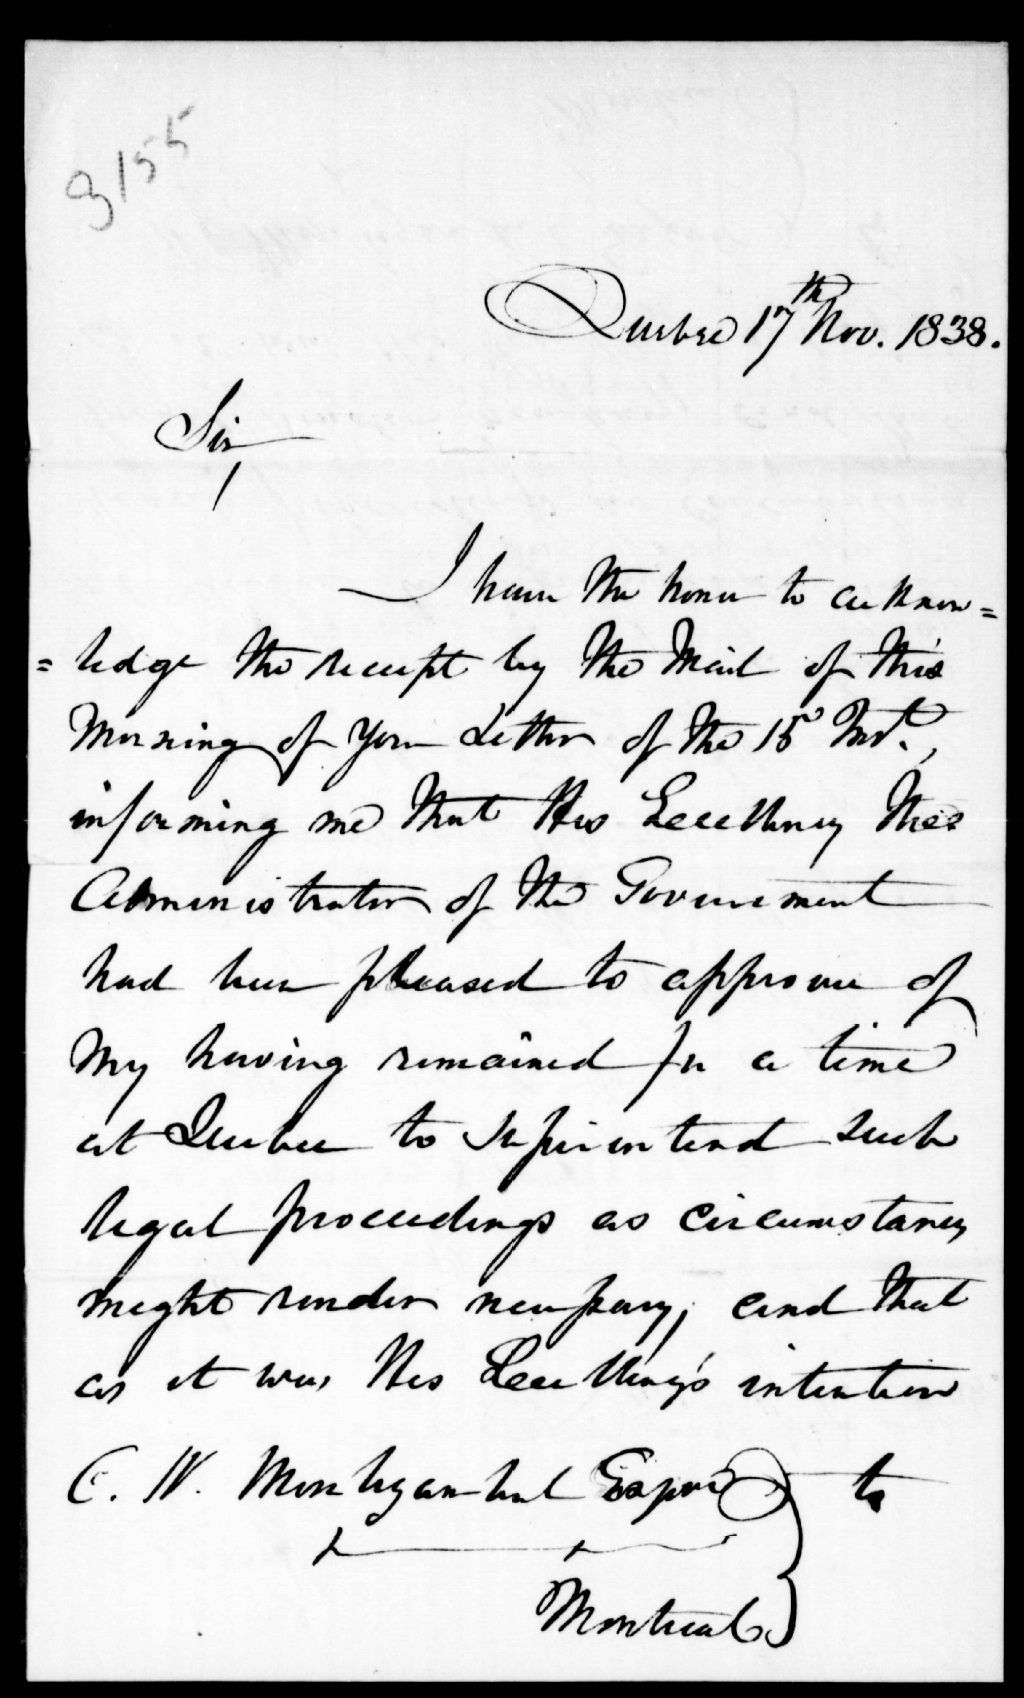 3155
Quebec 17th Nov. 1838.
Sir,
I have the honor to acknow=
=ledge the receipt by the Mail of this
Morning of your Letter of the 15th Inst.,
informing me that His Excellency the
Administrator of the Government
had been pleased to approve of
my having remained for a time
at Quebec to superintend such
legal proceedings as circumstances
might render necessary, and that
as it was His Excellency's intention
C. W. Montizambert Esquire to
&c &c
Montreal